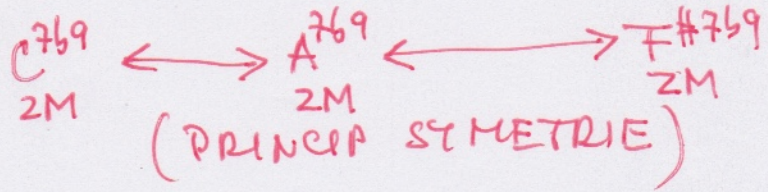 C7b9 ↔ A7b9 ↔ F#7b9
2M 2M 2M
(PRINCIP SYMETRIE)